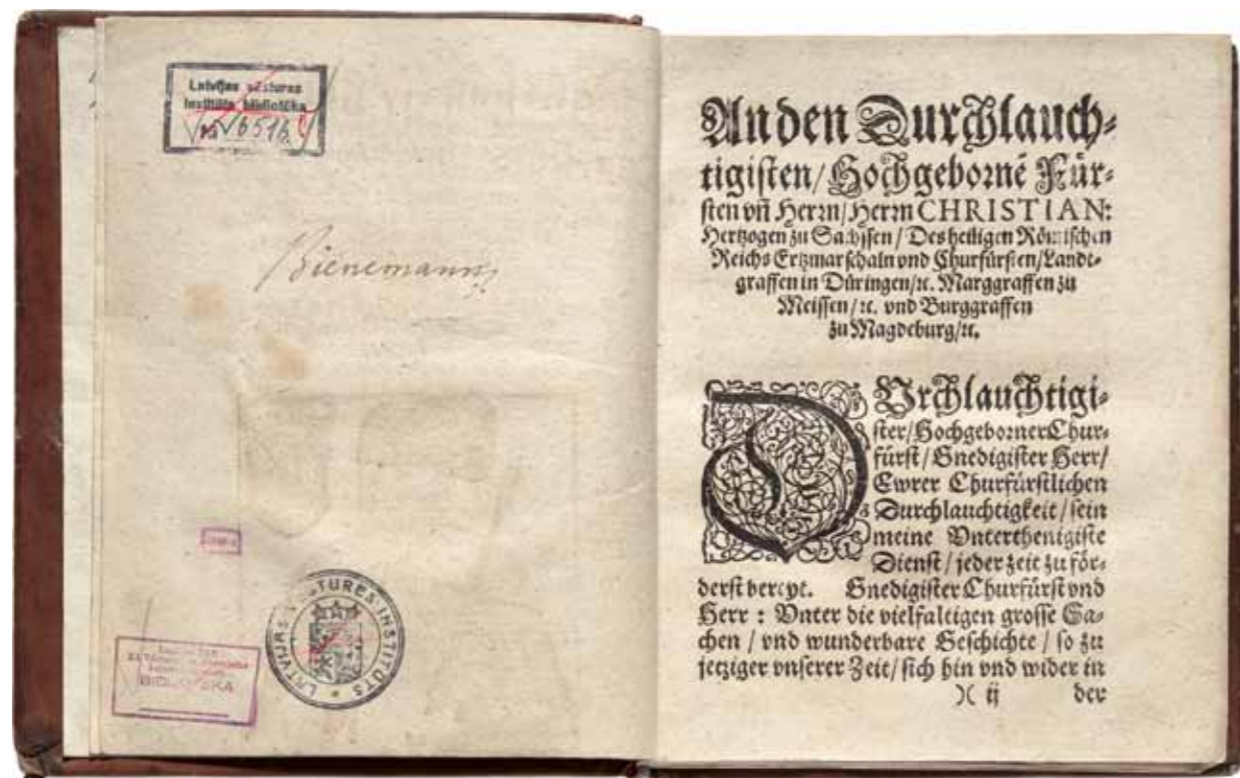 Latvijas vēstures
Institūta bibliotēka
№ 6516
Bienemann
LATVIJAS VĒSTURES INSTITŪTS
BIBLIOTEKA
An den Durchlauch⸗
tigiſten/ Hochgebornē Fůr⸗
ſten vñ Herrn/ Herrn CHRISTIAN:
Hertzogen zu Sachſſen / Des heiligen Rōmiſchen
Reichs Ertzmarſchaln vnd Churfůrſten/ Landt⸗
graffen in Důringen/ ꝛc. Marggraffen zu
Meiſſen/ ꝛc. vnd Burggraffen
zu Magdeburg/ ꝛc.
DVrchlauchtigi⸗
ſter/ Hochgeborner Chur⸗
fůrſt / Gnedigiſter Herr/
Ewrer Churfůrſtlichen
Durchlauchtigkeit / ſein
meine Vnterthenigiſte
Dienſt / jeder zeit zu fōr⸗
derſt bereyt. Gnedigiſter Churfůrſt vnd
Herr : Vnter die vielfaltigen groſſe Sa⸗
chen / vnd wunderbare Geſchichte / ſo zu
jetziger vnſerer Zeit/ ſich hin vnd wider in
)( ij der